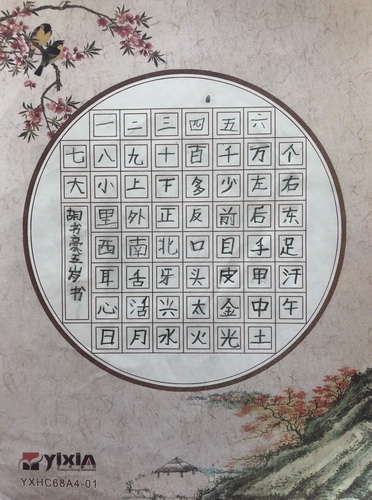 一二三四五六
七八九十百千万个
大小上下多少左右
里外正反前后东
西南北口目手足
耳舌牙头皮甲汗
心活兴太金中午
日月水火光土
胡书豪五岁书
YIXIA
YXHC68A4-01